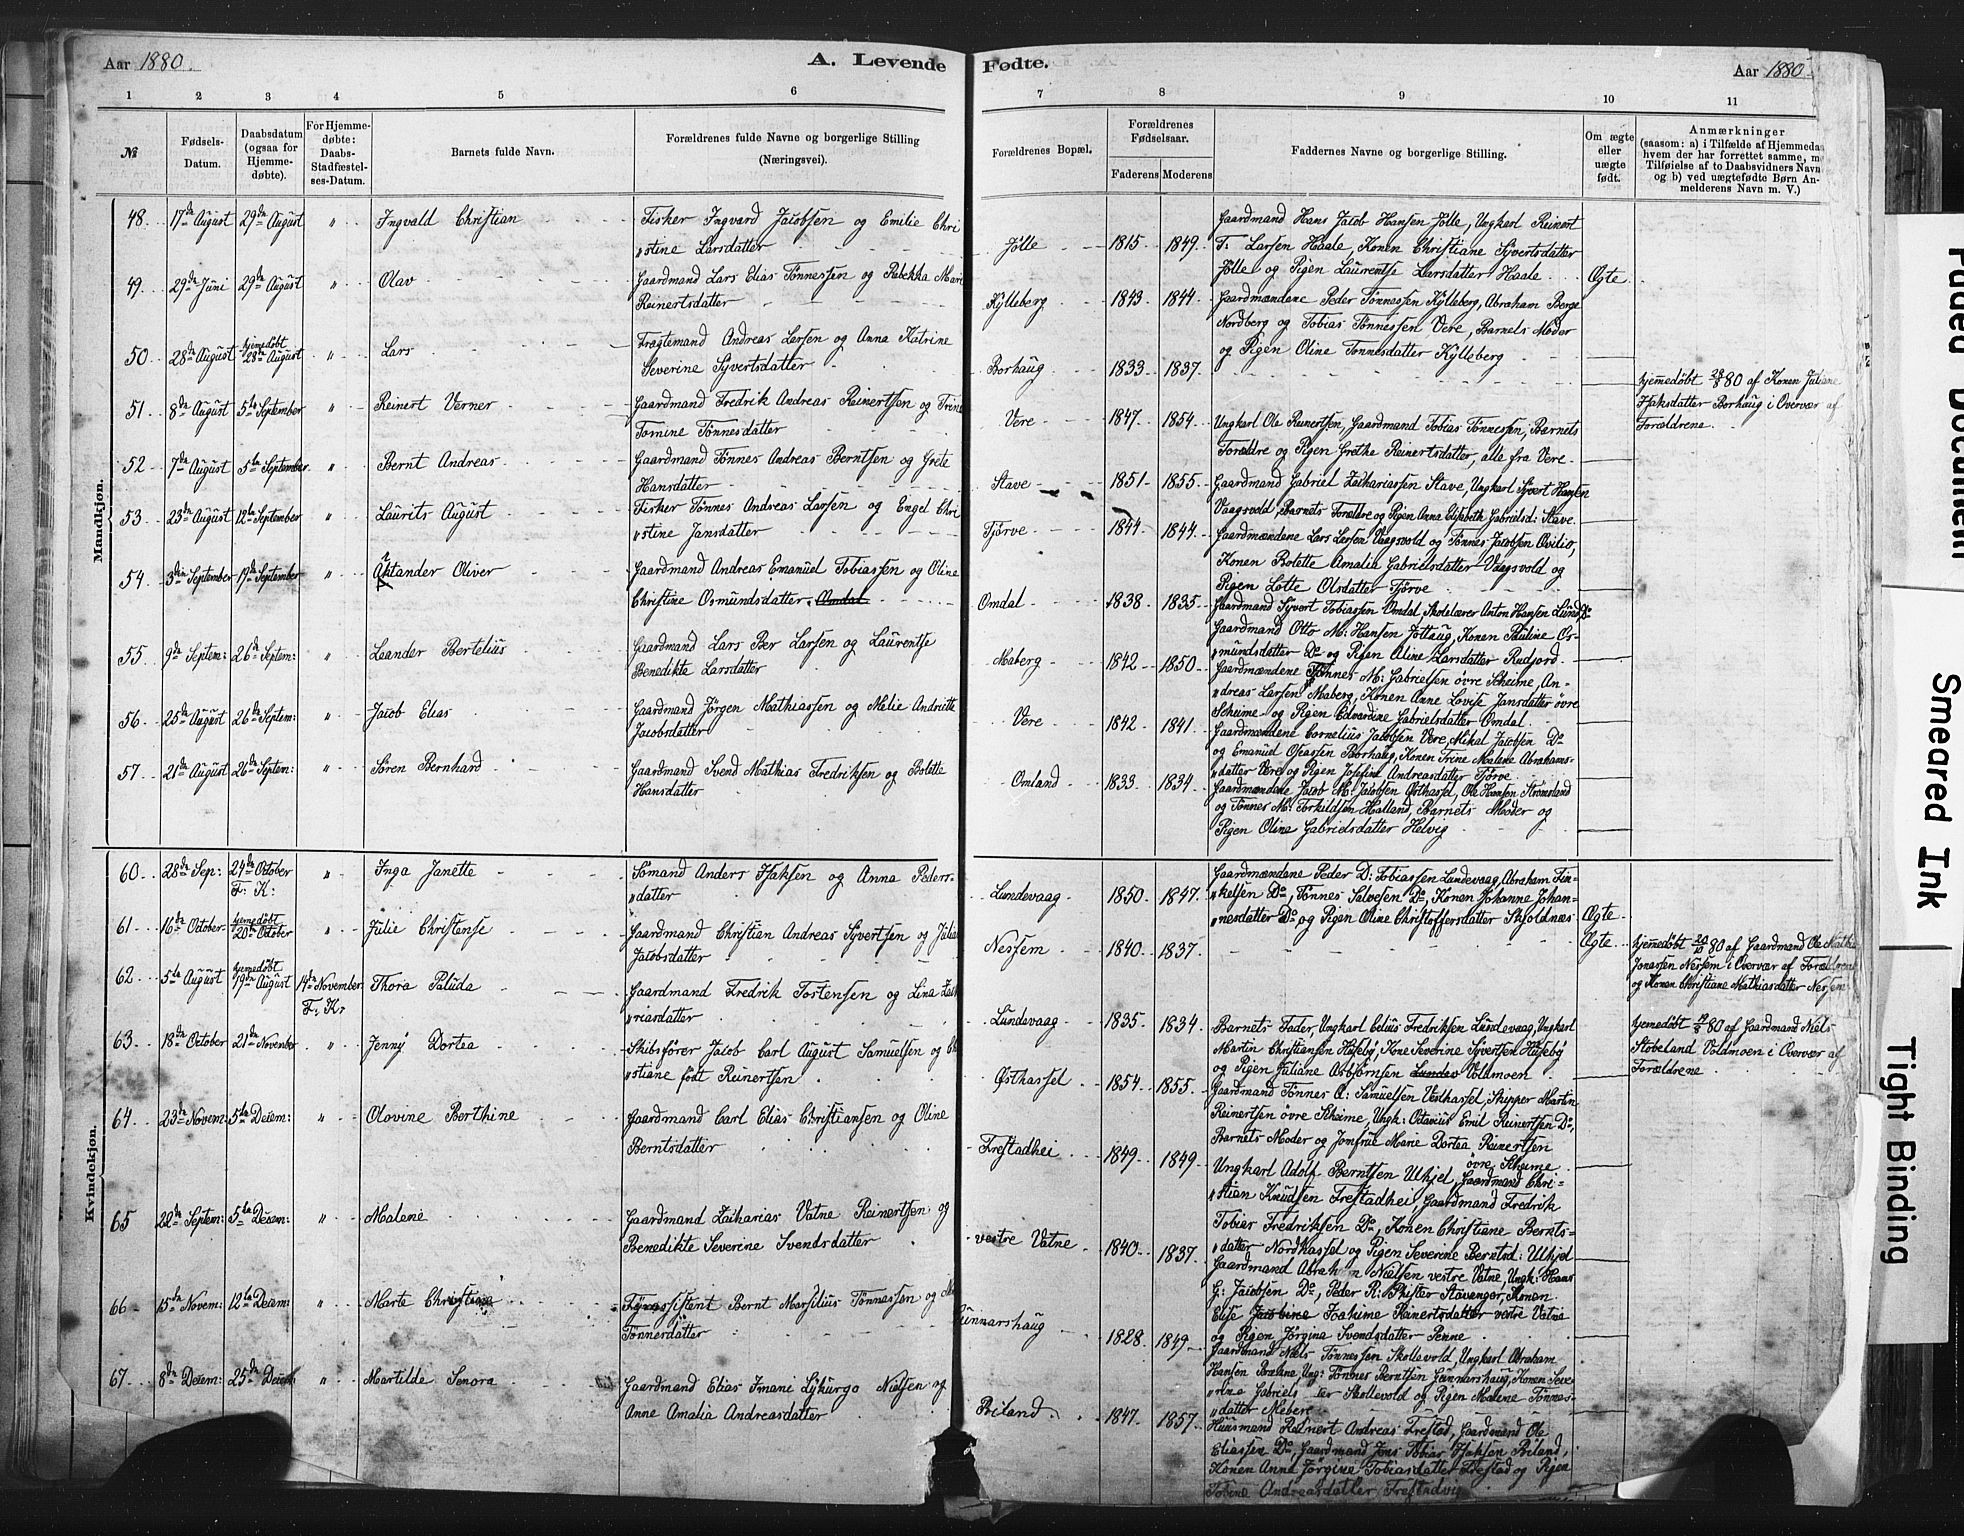 Aar 1880.
A. Levende Fødte.
Aar 1880
1 2 3 4 5 6 7 8 9 10 11
№
Fødsels-Datum.
Daabsdatum (ogsaa for Hjemmedøbte).
For Hjemmedøbte: Daabs-Stadfæstelses-Datum.
Barnets fulde Navn.
Forældrenes fulde Navne og borgerlige Stilling (Næringsvei).
Forældrenes Bopæl.
Forældrenes Fødselsaar.
Faderens Moderens
Faddernes Navne og borgerlige Stilling.
Om ægte eller uægte født.
Anmærkninger
(saasom: a) i Tilfælde af Hjemmedaa
hvem der har forrettet samme, m
Tilføielse af to Daabsvidners Navn
og b) ved uægtefødte Børn An-
melderens Navn m. V.)
Mandkjøn.
48. 17de August 29de August " Ingvald Christian
Fisker Ingvard Jacobsen og Emilie Chri
"stine Larsdatter
Jölle 1815 1849.
Gaardmand Hans Jacob Hansen Jölle, Ungkarl Reinert
T. Larsen Haale, Konen Christiane Syvertsdatter
Jölle og Pigen Laurentse Larsdatter Haale
Ægte
49. 29de Juni 29de August " Olav
Gaardmand Lars Elias Tönnessen og Rebekka Mari
Reinertsdatter
Kylleberg 1843 1844.
Gaardmændene Peder Tönnessen Kylleberg, Abraham Berge
Nordberg og Tobias Tönnessen Vere, Barnets Moder
og Pigen Oline Tönnesdatter Kylleberg
50. 28de August hjemedöbt 28de August " Lars
Fragtemand Andreas Larsen og Anna Katrine
Severine Syvertsdatter
Borhaug 1833 1837.
hjemedöbt 28/8 80 af Konen Juliane
Isaksdatter Borhaug i Overvær af
Forældrene.
51. 8de August 5te September " Reinert Verner
Gaardmand Fredrik Andreas Reinertsen og Trine
Tomine Tönnesdatter
Vere 1847. 1854.
Ungkarl Ole Reinertsen, Gaardmand Tobias Tönnessen, Barnets
Forældre og Pigen Grethe Reinertsdatter, alle fra Vere.
52. 7de August 5te September " Bernt Andreas
Gaardmand Tönnes Andreas Berntsen og Grete
Hansdatter
Stave 1851 1855.
Gaardmand Gabriel Zachariassen Stave, Ungkarl Syvert Hansen
Vaagsvold, Barnets Forældre og Pigen Anna Elisabeth Gabrielsd: Stave.
53. 23de August 12te September " Laurits August
Fisker Tönnes Andreas Larsen og Engel Chri
"stine Jansdatter
Tjörve 1844 1844.
Gaardmændene Lars Larsen Vaagsvold og Tönnes Jacobsen Qvilio,
Konen Bolette Amalia Gabrielsdatter Vaagsvold og
Pigen Lotte Olsdatter Tjörve
54. 3die September 19de September " tander Oliver
Gaardmand Andreas Emanuel Tobiassen og Oline
Christine Osmundsdatter. Omdal
Omdal 1838 1835.
Gaardmand Syvert Tobiassen Omdal, Skolelærer Anton Hansen Lunde
Gaardmand Otto M: Hansen Jöttaug, Konen Pauline Os-
"mundsdatter Do og Pigen Aline Larsdatter Rudjord
55. 9de Septem: 26de Septem: " Leander Bertelius
Gaardmand Lars Ber Larsen og Laurentse
Benedikte Larsdatter
Maberg 1842 1850.
Gaardmændene Tönnes M: Gabrielsen övre Skeime, An-
"dreas Larsen Maberg, Konen Anne Lovise Jansdatter övre
Skeime og Pigen Edvardine Gabrielsdatter Omdal
56. 25de August 26de Septem: " Jacob Elias
Gaardmand Jörgen Mathiassen og Malie Andriette
Jacobsdatter
Vere 1842 1841.
Gaardmændene Cornelius Jacobsen Vere, Mikal Jacobsen Do
og Emanuel Oseassen Borhaug, Konen Trine Malene Abrahams-
"datter Vere og Pigen Josefine Andreasdatter Tjörve
57. 21de August 26de Septem: " Sören Bernhard
Gaardmand Svend Mathias Fredriksen og Bolette
Hansdatter
Omland 1833 1834.
Gaardmændene Jacob M: Jacobsen Östhassel, Ole Hansen Strömsland
og Tönnes M: Torkildsen Halland, Barnets Moder og
Pigen Oline Gabrielsdatter Helvig
Kvindekjøn.
60. 28de Sep: 24de October F: K: " Inga Janette
Sömand Anders Isaksen og Anna Peders-
"datter
Lundevaag 1850 1847.
Gaardmændene Peder D: Tobiassen Lundevaag, Abraham Fin-
"kelsen Do, Tönnes Salvesen Do, Konen Johanne Johan-
"nesdatter Do, og Pigen Oline Christoffersdatter Skjoldnæs
Ægte
61. 16de October hjemedöbt 20de October " Julie Christense
Gaardmand Christian Andreas Syvertsen og Julian
Jacobsdatter
Nessem 1840 1837.
Ægte
hjemedöbt 20/10 80 af Gaardmand Ole Mathia
Jonassen Nessem i Overvær af Forældrene
og Konen Christiane Mathiasdatter Nessem
62. 5te August hjemedöbt 19de August 14de November F: K: Thora Paluda
Gaardmand Fredrik Tostensen og Lina Zak
"riasdatter
Lundevaag 1835 1834.
Barnets Fader, Ungkarl Celius Fredriksen Lundevaag, Ungkarl
Martin Christiansen Huseby, Kone Severine Syvertsen Huseby
og Pigen Juliane Asbjörnsen Lundev Voldmoen
hjemedöbt 19/8 80 af Gaardmand Niels
Stöbeland Voldmoen i Overvær af
Forældrene
63. 18de October 21de November " Jenny Dortea
Skibsförer Jacob Carl August Samuelsen og Ch
"stiane födt Reinertsen
Östhassel 1854 1855.
Gaardmand Tönnes O: Samuelsen Vesthassel, Skipper Martin
Reinertsen övre Skeime, Ungk: Octavius Emil Reinertsen Do,
Barnets Moder og Jomfrue Marie Dortea Reinertsen
övre Skeime
64. 23de Novem: 5te Decem: " Olovine Berthine
Gaardmand Carl Elias Christiansen og Oline
Berntsdatter
Frestadhei 1849 1849
Ungkarl Adolf Berntsen Ulhjel, Gaardmand Chri-
"stian Knudsen Frestadhei, Gaardmand Fredrik
Tobias Fredriksen Do, Konen Christiane Bernts-
"datter Nordhassel og Pigen Severine Berntsd: Ulhjel
65 22de Septem: 5te Decem: " Malene
Gaardmand Zacharias Vatne Reinertsen og
Benedikte Severine Svendsdatter
vestre Vatne 1840 1837
Gaardmand Abraham Nielsen vestre Vatne, Ungk: Hans
G: Jacobsen Do, Peder R: Phister Stavanger, Konen
Elise Jacobine Joakime Reinertsdatter vestre Vatne
og Pigen Jörgine Svendsdatter Penne
66 15de Novem: 12te Decem: " Marte Christine
Fyrassistent Bernt Marsilius Tönnessen og
Tönnesdatter
Gunnarshaug 1828 1849
Gaardmand Niels Tönnessen Skollevold, Ungkarl Abraham
Hansen Bræne, Ung: Tönnes Berntsen Gunnarshaug, Konen Seve-
"rine Gabriels ter Skollevold og Pigen Malene Tönnes-
"datter Meberg
67 8de Decem: 25de Decem " Martilde Senora
Gaardmand Elias Imani Lykurgo Nielsen og
Anne Amalia Andreasdatter
Briland 1847. 1857
Huusmand Reinert Andreas Frestad, Gaardmand Ole
Eliassen Do, Gaardmand Jens Tobias Isaksen Briland,
Konen Anne Jörgine Tobiasdatter Frestad og Pigen
Tobine Andreasdatter Frestadvig
Faded Document
Smeared Ink
Tight Binding